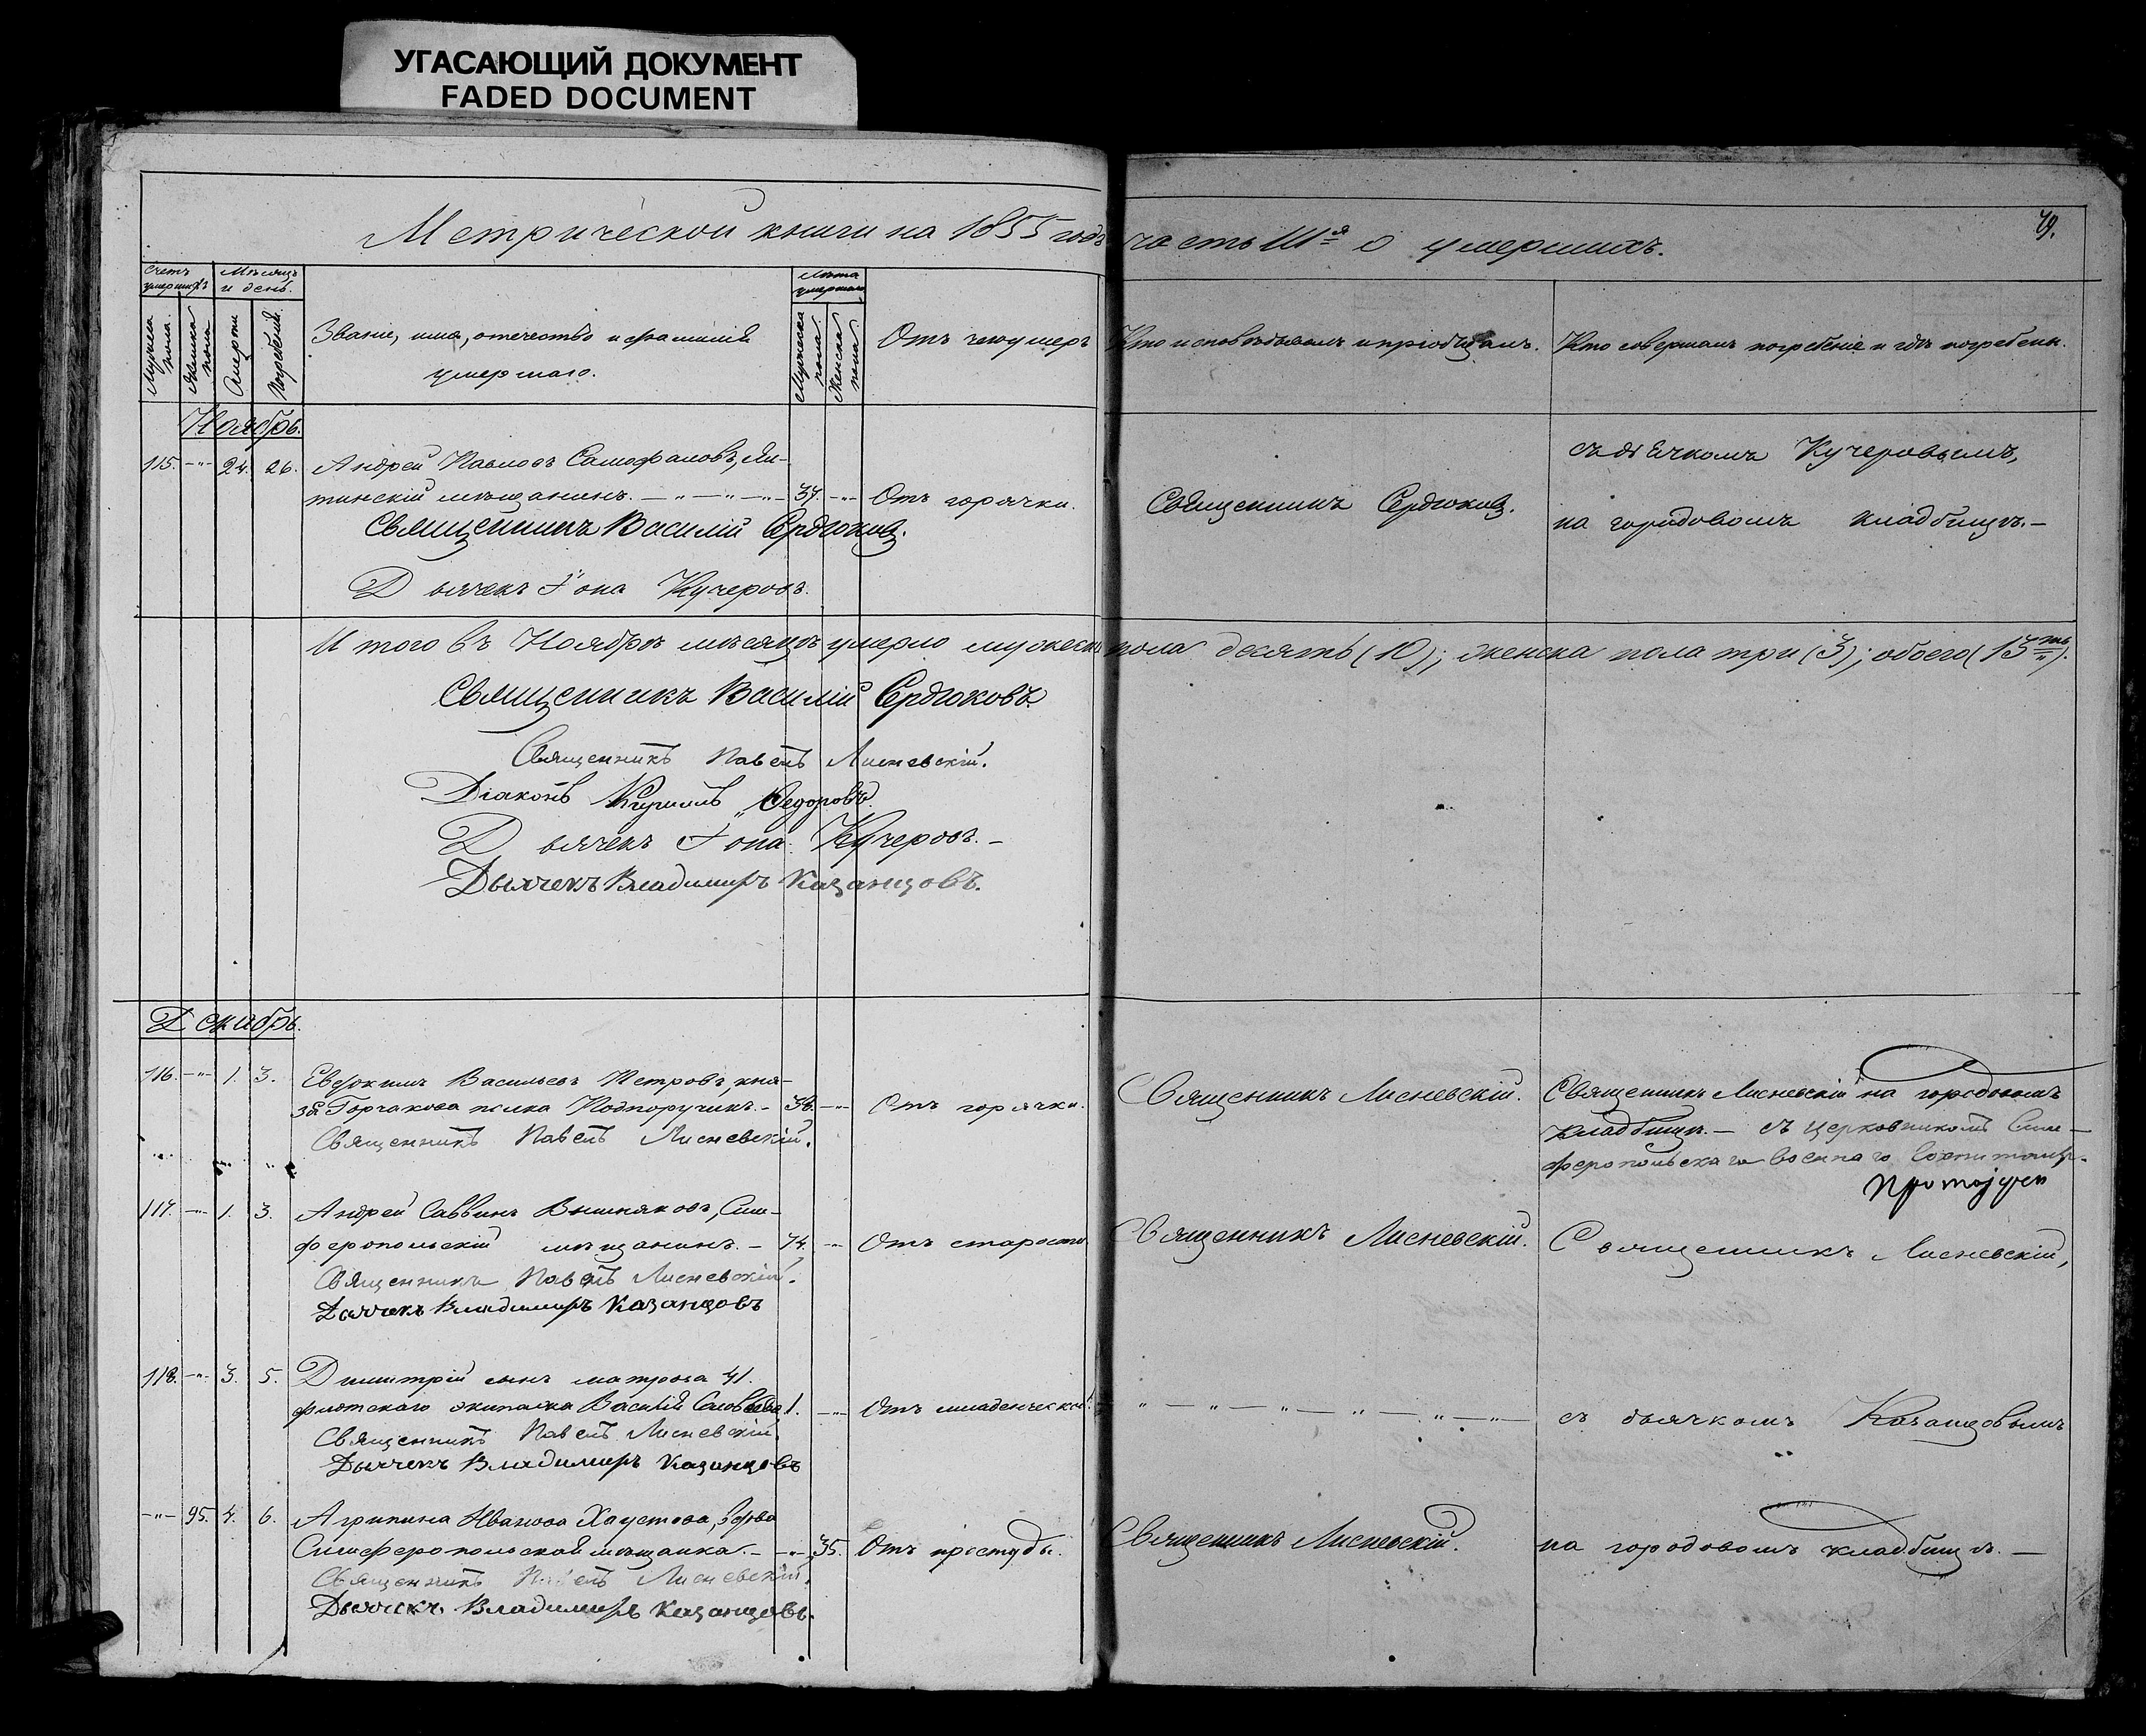 УГАСАЮЩИЙ ДОКУМЕНТ
FADED DOCUMENT
Метрической книги на 1855 годъ часть III-я о умершихъ.
79.
Счетъ умершихъ
Мѣсяцъ и день.
Лѣта умершаго
Мужеска пола.
Женска пола
Смерти
Погребенія.
Званіе, имя, отечество и фамилія
умершаго.
Мужеска пола.
Женска пола.
Отъ чего умеръ
Кто исповѣдывалъ и пріобщалъ.
Кто совершалъ погребеніе и гдѣ погребены.
Ноябрь.
115. -"- 24. 26. Андрей Павловъ Самофаловъ,
тинскій мѣщанинъ. — " — " — " — 37. -"- Отъ горячки.
Священникъ Сердюковъ.
съ дьячкомъ Кучеровымъ,
на городовомъ кладбищѣ.—
Священникъ Василій Сердюковъ.
Дьячекъ Іона Кучеровъ.
Итого въ Ноябрѣ мѣсяцѣ умерло мужеска пола десять (10); женска пола три (3); обоего (13-ть).
Священникъ Василій Сердюковъ.
Священникъ Павелъ Лисневскій.
Діаконъ Кириллъ Федоровъ.
Дьячекъ Іона Кучеровъ.—
Дьячекъ Владимиръ Казанцовъ.
Декабрь.
116. -"- 1. 3. Евфокимъ Васильевъ Петровъ, кня-
зя Горчакова полка Подпоручикъ.- 38. -"- Отъ горячки.
Священникъ Павелъ Лисневскій.
Священникъ Лисневскій.
Священникъ Лисневскій на городовомъ
кладбищѣ.— съ церковникомъ Сим-
феропольскаго военнаго
117. -"- 1. 3. Андрей Саввинъ Вишняковъ, Сим-
феропольскій мѣщанинъ.— 74. -"- Отъ старости.
Священникъ Павелъ Лисневскій.
Дьячекъ Владимиръ Казанцовъ
Священникъ Лисневскій.
Священникъ Лисневскій,
118. -"- 3. 5. Димитрій сынъ матроса 41.
флотскаго экипажа Василія Соловьева 1. -"- Отъ младенческой.
Священникъ Павелъ Лисневскій.
Дьячекъ Владимиръ Казанцовъ
" — " — " — " — " — "
съ дьячкомъ Казанцовымъ
-"- 95. 4. 6. Агрипина Иванова Хаустова, вдова
Симферопольская мѣщанка.— -"- 35. Отъ простуды.
Священникъ Павелъ Лисневскій.
Дьячекъ Владимиръ Казанцовъ.
Священникъ Лисневскій.
на городовомъ кладбищѣ.—